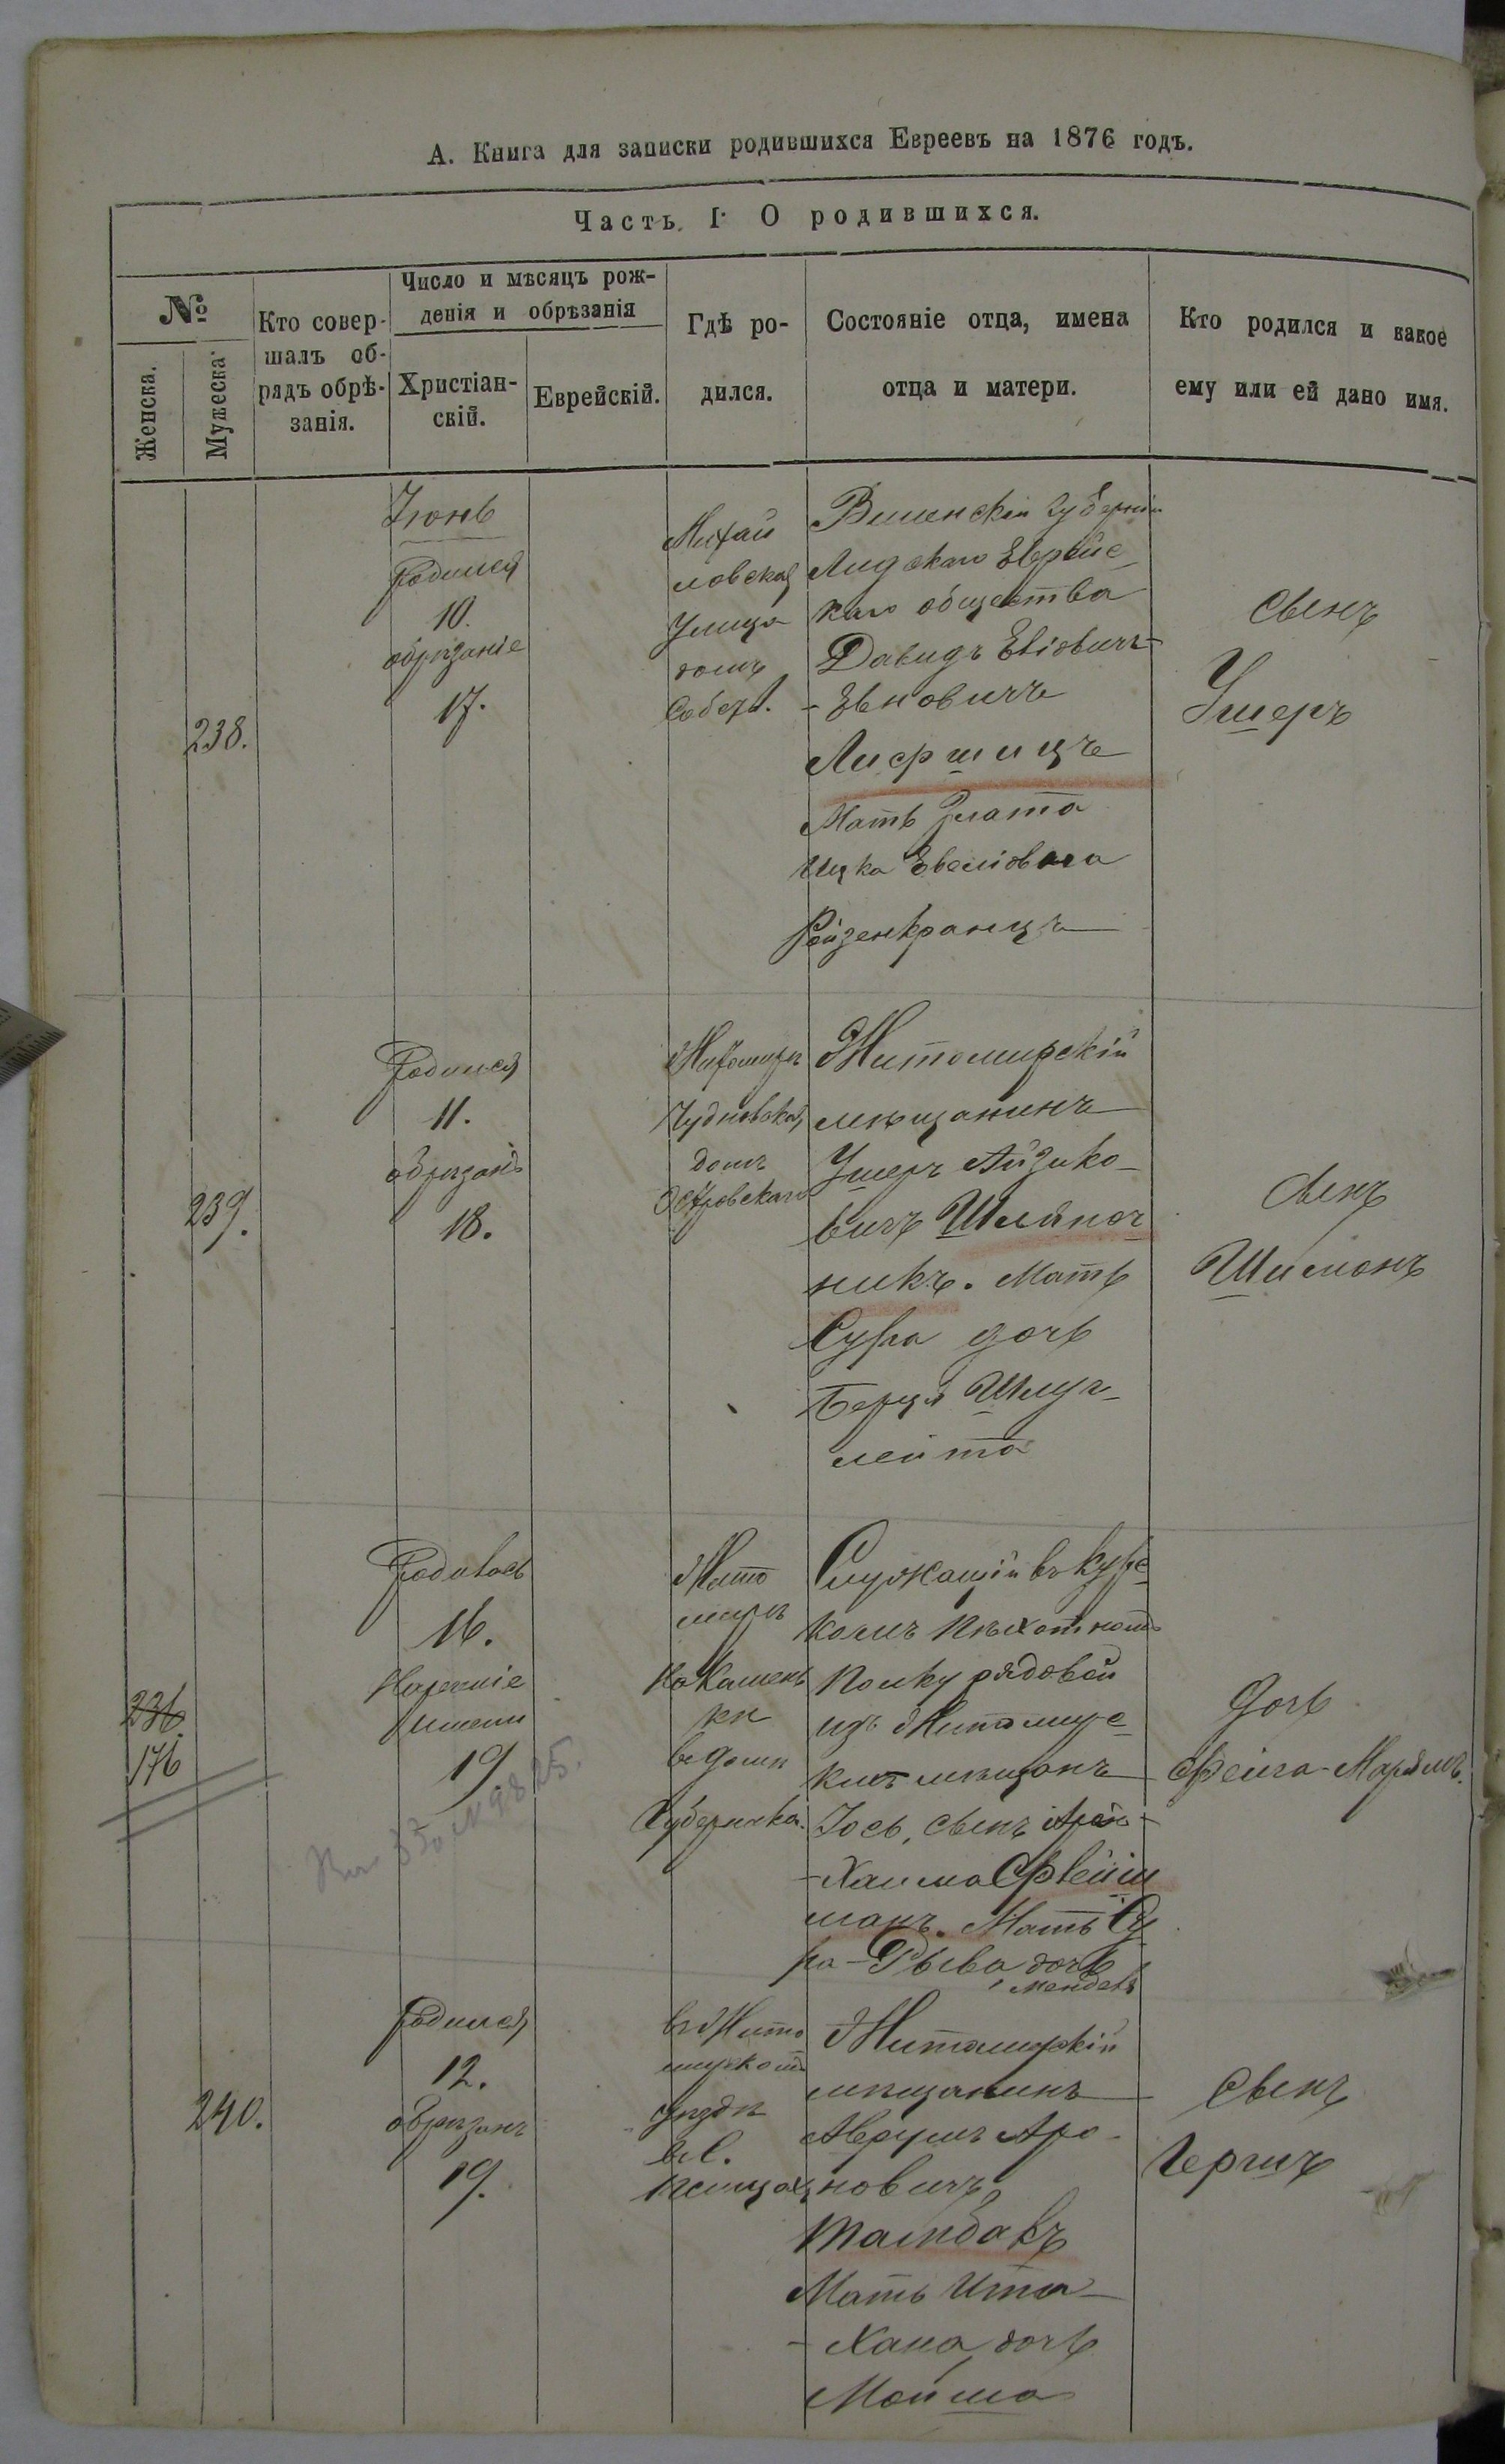 А. Книга для записки родившихся Евреевъ на 1876 годъ.
Часть I. О родившихся.
№
Женска.
Мужеска.
Кто совер-
шалъ об-
рядъ обрѣ-
занія.
Число и мѣсяцъ рож-
денія и обрѣзанія
Христіан-
скій.
Еврейскій.
Гдѣ ро-
дился.
Состояніе отца, имена
отца и матери.
Кто родился и какое
ему или ей дано имя.
238.
Іюнь
Родился
10.
обрѣзаніе
17.
Михай
ловская
Улица
домъ
Собств.
Виленскій губерніи
Лидскаго Еврейс
каго общества
Давидъ
Лифшицъ
Мать Злата
Ицка
Розенкранца
Сынъ
Ушеръ
239.
Родился
11.
обрѣзанъ
18.
Житомиръ
Чудновская
домъ
Островскаго
Житомирскій
мѣщанинъ
Ушеръ Айзико-
вичъ Шляпоч
никъ. Мать
Сура дочь
Берця Шмуг-
лейта
Сынъ
Шимонъ
236.
176
Родилась
16.
Нареченіе
имени
19.
№ 9825.
Жито
миръ
на Камен
ки
въ домѣ
Губерника.
Служащій въ Курс
комъ Пѣхотномъ
Полку рядовой
изъ Житомирс
кихъ мѣщанъ
Іось, сынъ Арон-
-Хаима Флейш
манъ. Мать Су
ра-Рыва дочь
Менделя
Дочь
Фейга-Марьямъ.
240.
Родился
12.
обрѣзанъ
19.
въ Жито
мирскомъ
уѣздѣ
въ С.
Псищахъ
Житомирскій
мѣщанинъ
Аврумъ Аро-
новичъ
Талибакъ
Мать Ита-
-Хана, дочь
Мойша
Сынъ
Гершъ